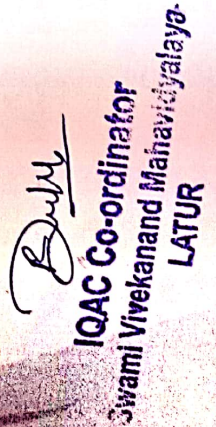 IQAC Co-ordinator
Swami Vivekanand Mahavidyalaya
LATUR